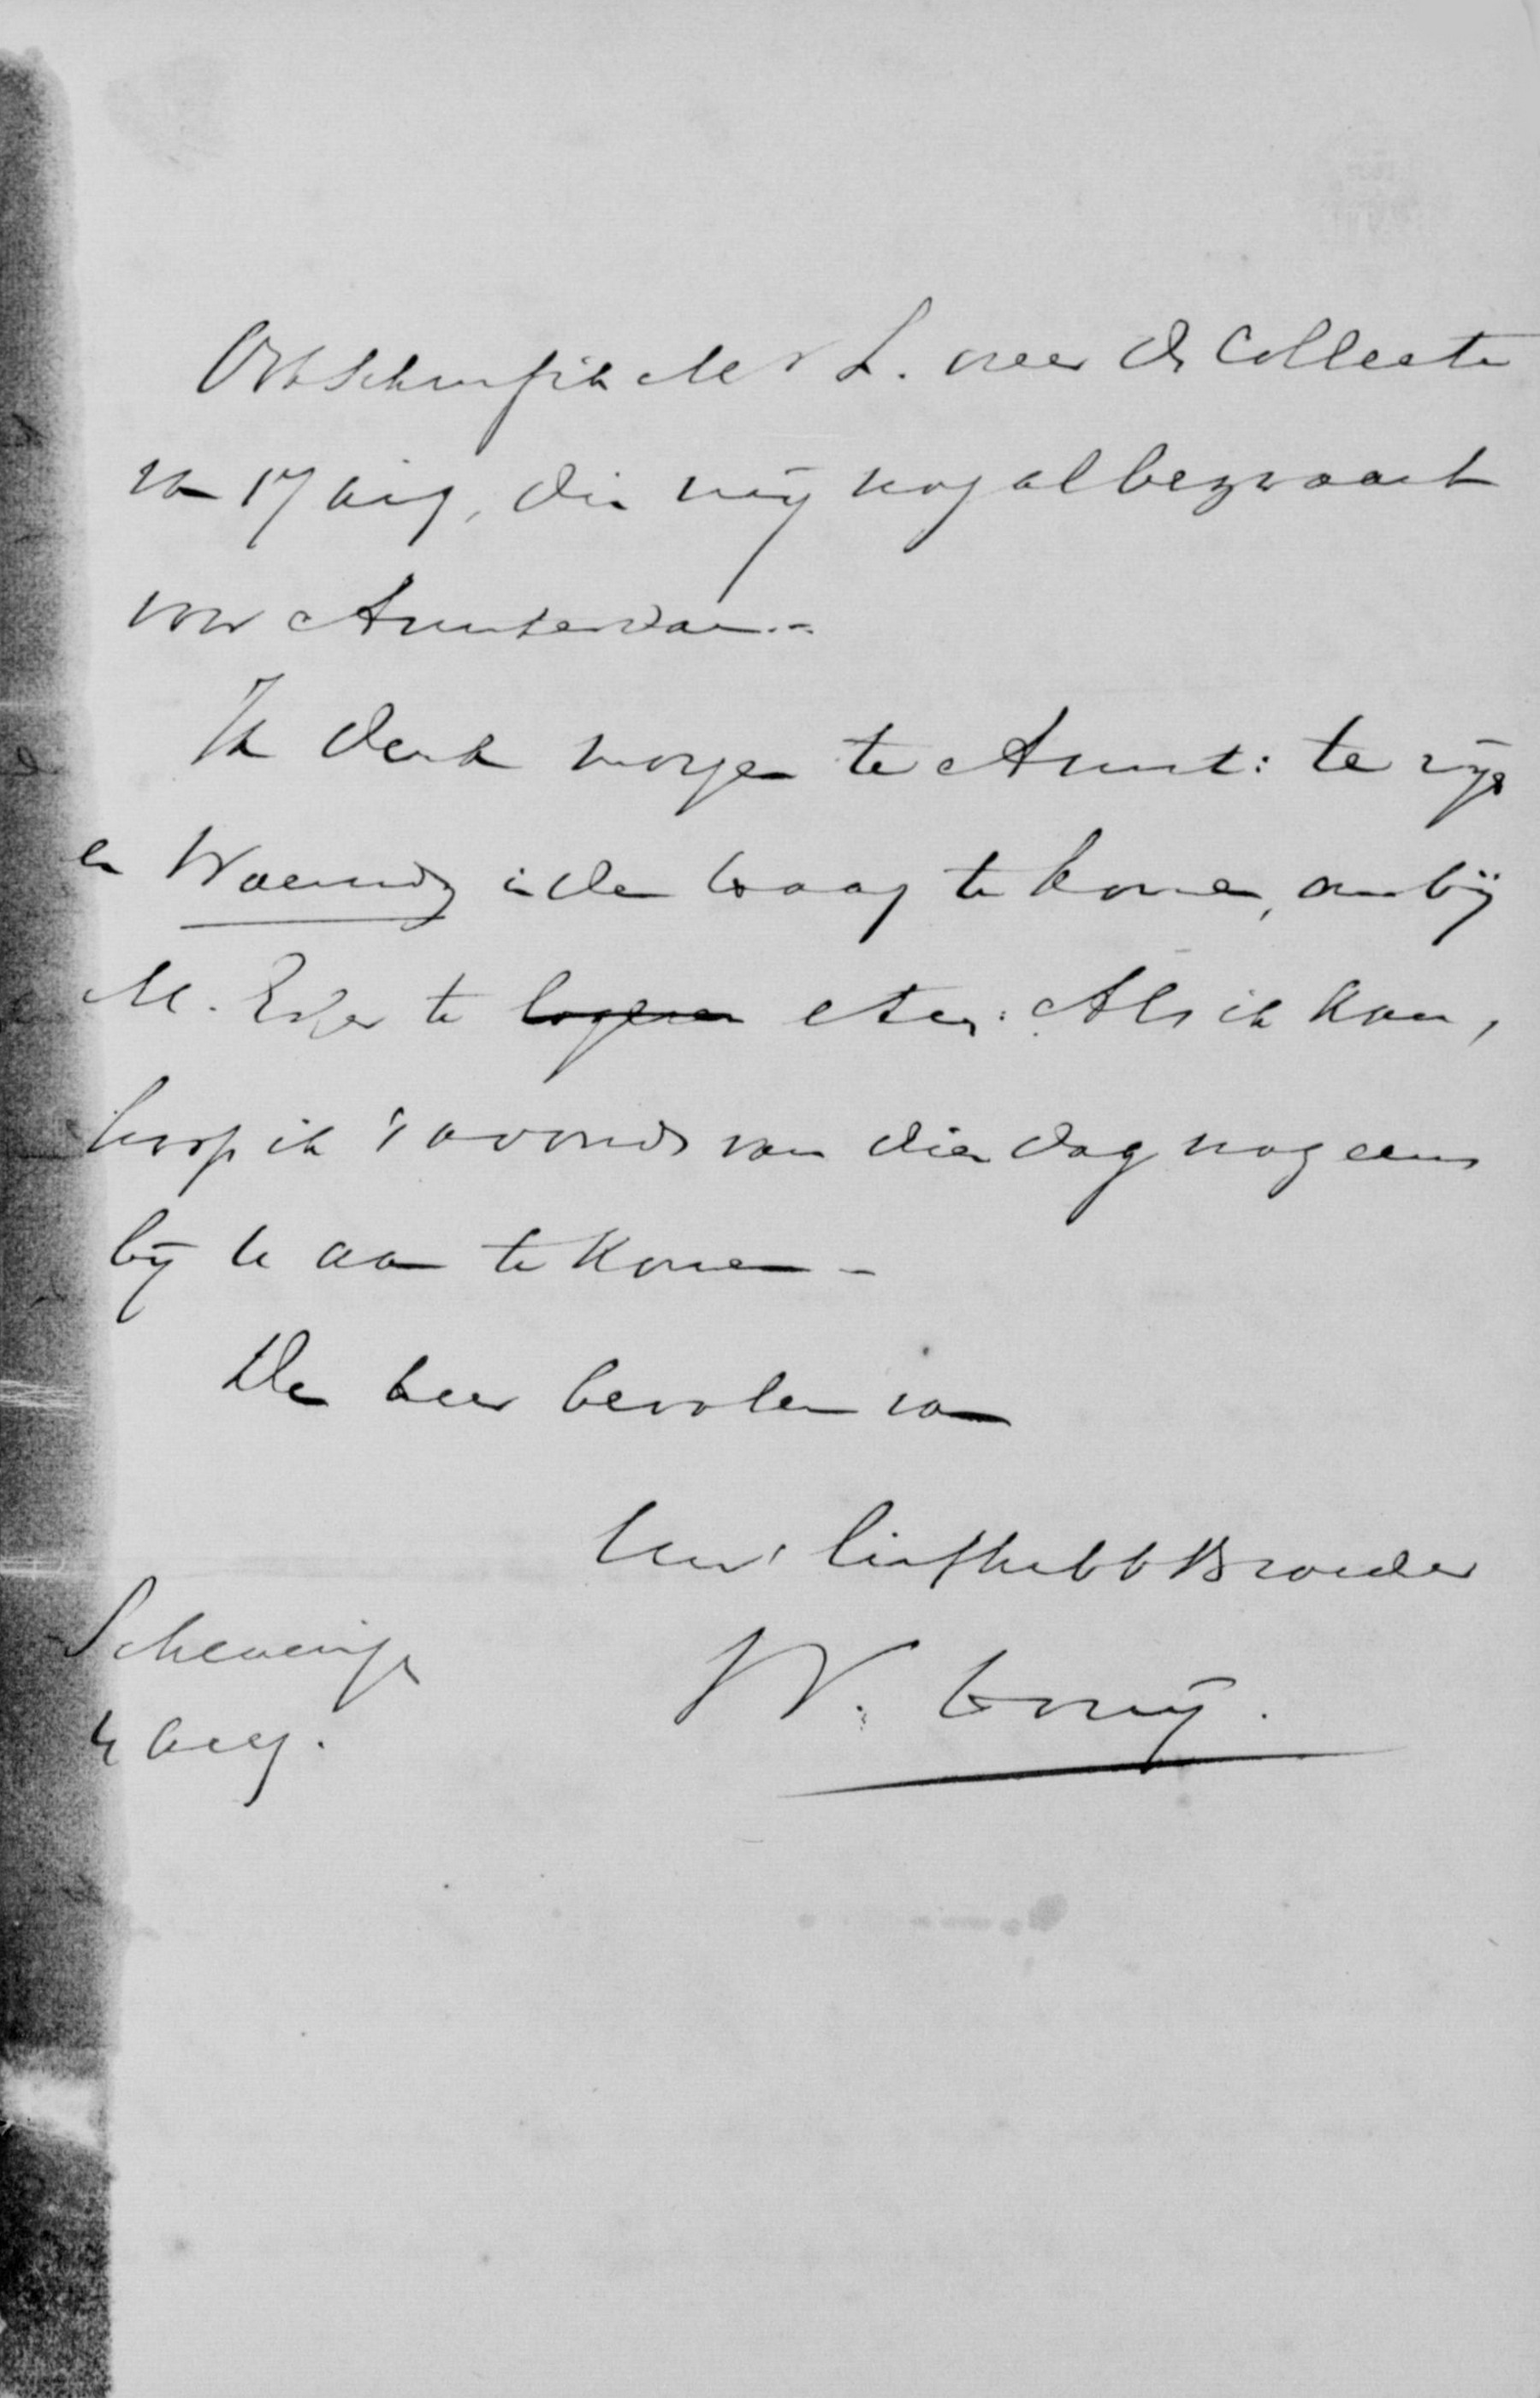 Ook schreef ik M v L. over de Collecte
van 17 Aug, die mij nog al bezwaart
voor Amsterdam.-
Ik denk morgen te Amst: te zijn
en Woensdg in den Haag te komen, om bij
M. Esser te logeren eten. Als ik kan,
hoop ik 's avonds van dien dag nog eens
bij U aan te komen -
De heer bevolen van
Uw' liefhebb Broeder
W. Hovij.
Schevening
4 Aug.